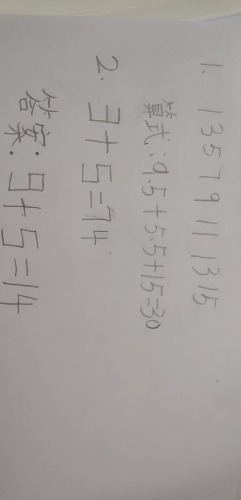 1. 1 3 5 7 9 11 13 15
算式:9.5+5.5+15=30
2. ヨ+5=74
答案:9+5=14